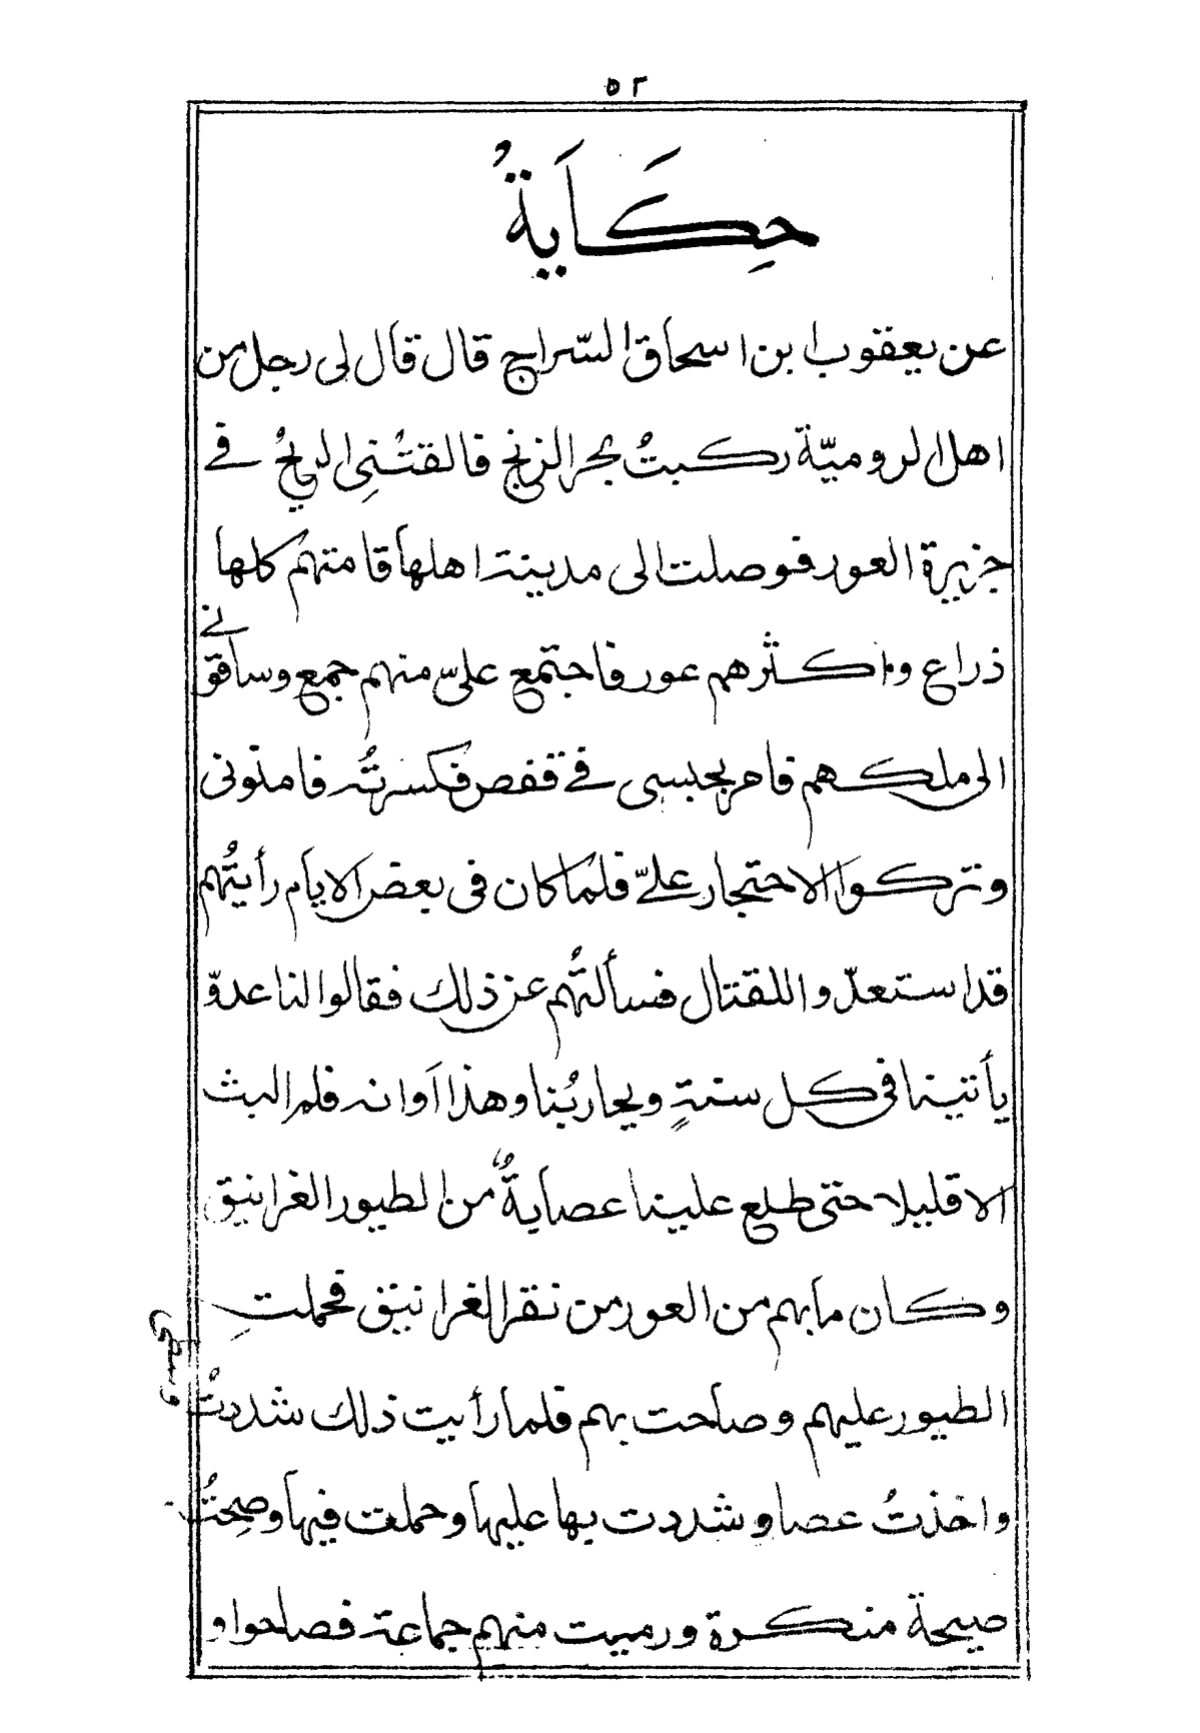 ٥٢
حِكَايَةُ
عن يعقوب ابن اسحاق السّراج قال قال لى رجل من
اهل الروميّة ركبتُ بحر الزنج فالقتْنِى الريحُ في
جزيرة العور فوصلت الى مدينة اهلها قامتهم كلها
ذراع واكثرهم عور فاجتمع علىّ منهم جمع وساقونى
الى ملكهم فامر بحبسى في قفص فكسرتُه فامنونى
وتركوا الاحتجار علىّ فلما كان فى بعض الايام رأيتُهم
قد استعدّ واللقتال فسألتُهم عن ذلك فقالوا لنا عدوّ
يأتينا فى كل سنةٍ ويحاربُنا وهذا اَوانه فلم البث
الا قليلا حتى طلع علينا عصابةٌ من الطيور الغرانيق
وكان مابهم من العور من نقر الغرانيق فحملتِ
الطيور عليهم وصاحت بهم فلما رأيت ذلك شددتُ
وسطى
واخذتُ عصا وشددت بها عليها وحملت فيها وصِحتُ
صيحة منكرة ورميت منهم جماعة فصاحوا و